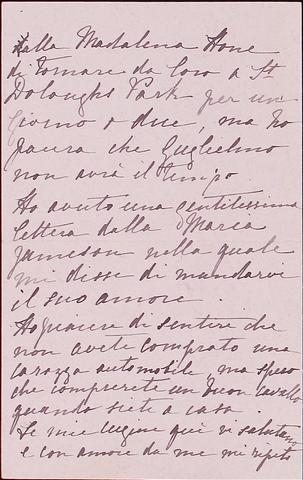 dalla Madalena Hone
di tornare da loro a St
Doloughs Park per un
giorno o due, ma ho
paura che Guglielmo
non avrà il tempo.
Ho avuto una gentilissima
lettera dalla Maria
Jameson nella quale
mi disse di mandarvi
il suo amore.
Ho piacere di sentire che
non avete comprato una
carozza automobile, ma spero
che comprerete un buon cavallo
quando siete a casa.
Le mie cugine qui vi salutano
e con amore da me mi ripeto